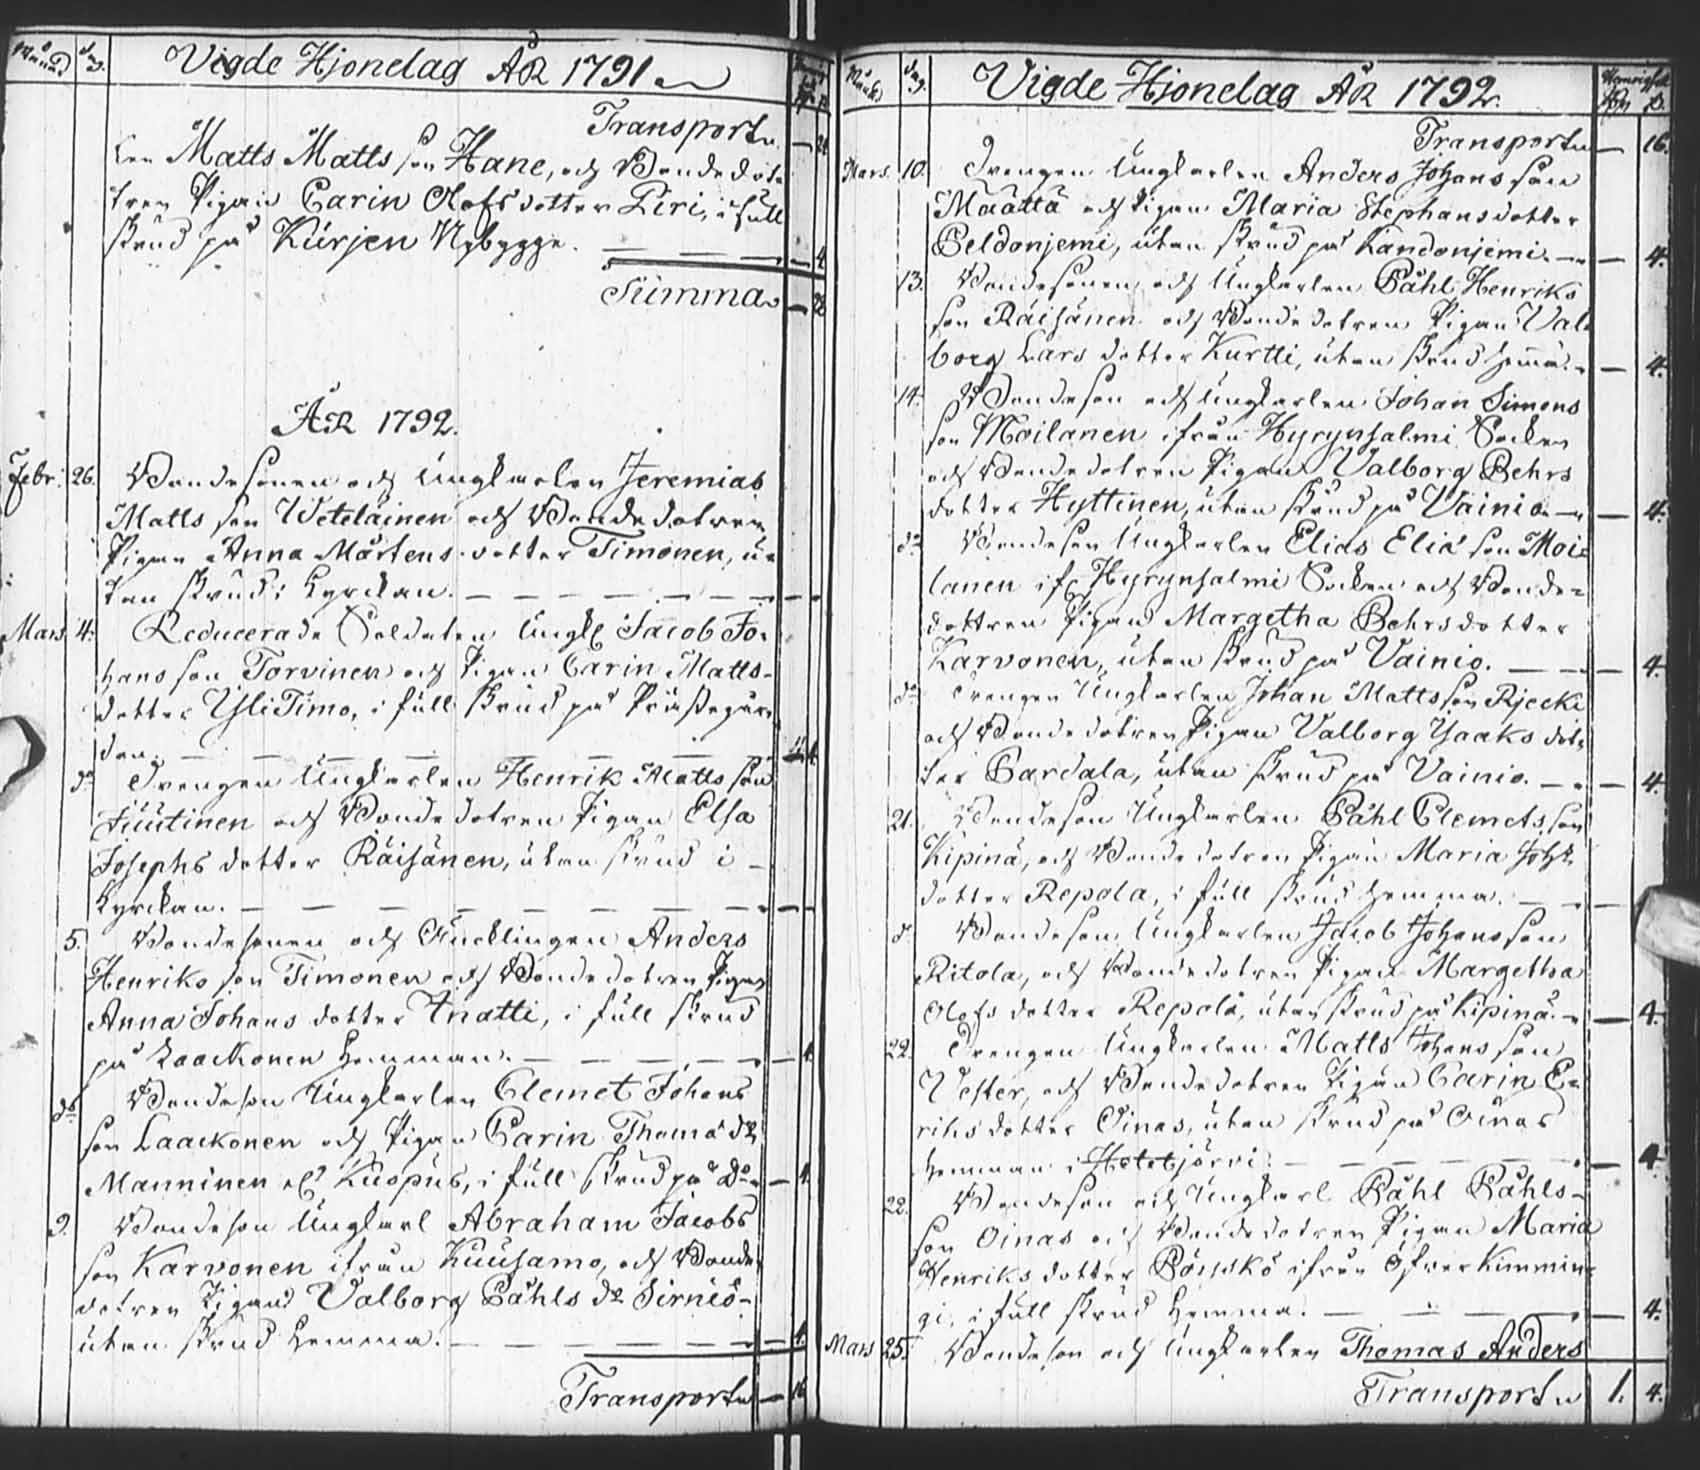 Månad
Dag.
Vigde Hjonelag ÅR 1791
Transport
len Matts Matts son Hane, och Bondedot-
tren Pigan Carin Olofs dotter Piri, i full
skrud på Kurjen Nybygge. — — 4
Summa — 28
ÅR 1792.
Febr: 26. Bondesonen och Ungkarlen Jeremias
Matts son Weteläinen och Bondedotren
Pigan Anna Mårtens dotter Timonen, u-
tan skrud i Kyrckan. — — — — — —
Mars 4. Reducerade Soldaten Ungk: Jacob Jo-
hans son Torvinen och Pigan Carin Matts-
dotter YliTimo, i full skrud på Prästegår-
den. — — — — — 4
do Drengen Ungkarlen Henrik Matts son
Juutinen och Bondedotren Pigan Elsa
Josephs dotter Räisänen, utan skrud i
Kyrckan. — — — — — — —
5. Bondesonen och Äncklingen Anders
Henriks son Timonen och Bondedotren Pigan
Anna Johans dotter Anatti, i full skrud
på Laackonen Hemman. — — — — 4.
do Bondeson Ungkarlen Clemet Johans
son Laackonen och Pigan Carin Thoma dr
Manninen el: Kuopus, i full skrud på do — 4.
9. Bondeson Ungkarl Abraham Jacobs
son Karvonen ifrån Kuusamo, och Bonde-
dotren Pigan Valborg Påhls dr Sirniö
utan skrud hemma. — — — — 4.
Transport — 16
Månad
Dag.
Vigde Hjonelag ÅR 1792.
Transport — 16.
Mars. 10. Drengen Ungkarlen Anders Johans son
Määttä och Pigan Maria Stephans dotter
Peldonjemi, utan skrud på Kandonjemi. — 4.
13. Bondesonen och Ungkarlen Påhl Henriks
son Räisänen och Bondedotren Pigan Val-
borg Lars dotter Kurtti, utan skrud hemma. — 4.
14. Bondeson och Ungkarlen Johan Simons
son Moilanen ifrån Hyrynsalmi Socken
och Bondedotren Pigan Valborg Pehrs
dotter Hyttinen, utan skrud på Vainio. — 4.
do Bondeson Ungkarlen Elias Eliæ son Moi-
lanen if: Hyrynsalmi Socken och Bonde-
dottren Pigan Margetha Pehrs dotter
Karvonen, utan skrud på Vainio. — — 4.
do Drengen Ungkarlen Johan Matts son Rjecki
och Bondedotren Pigan Valborg Ysaaks dot-
ter Pardala, utan skrud på Vainio. — — 4.
21. Bondeson Ungkarlen Påhl Clemets son
Kipinä, och Bondedotren Pigan Maria Joh:
dotter Repola, i full skrud hemma. — —
do Bondeson Ungkarlen Jacob Johans son
Ritola, och Bondedotren Pigan Margetha
Olofs dotter Repola, utan skrud på Kipinä. — 4.
22. Drengen Ungkarlen Matts Johans son
Vester, och Bondedotren Pigan Carin E-
riks dotter Oinas, utan skrud på Oinas
Hemman i Hetejärvi. — — — — 4.
22. Bondeson och Ungkarl Påhl Påhls-
son Oinas och Bondedotren Pigan Maria
Henriks dotter ifrån Öfver Kimmin-
gi, i full skrud hemma. — — — — 4.
Mars 25. Bondeson och Ungkarlen Thomas Anders
Transport 1. 4.